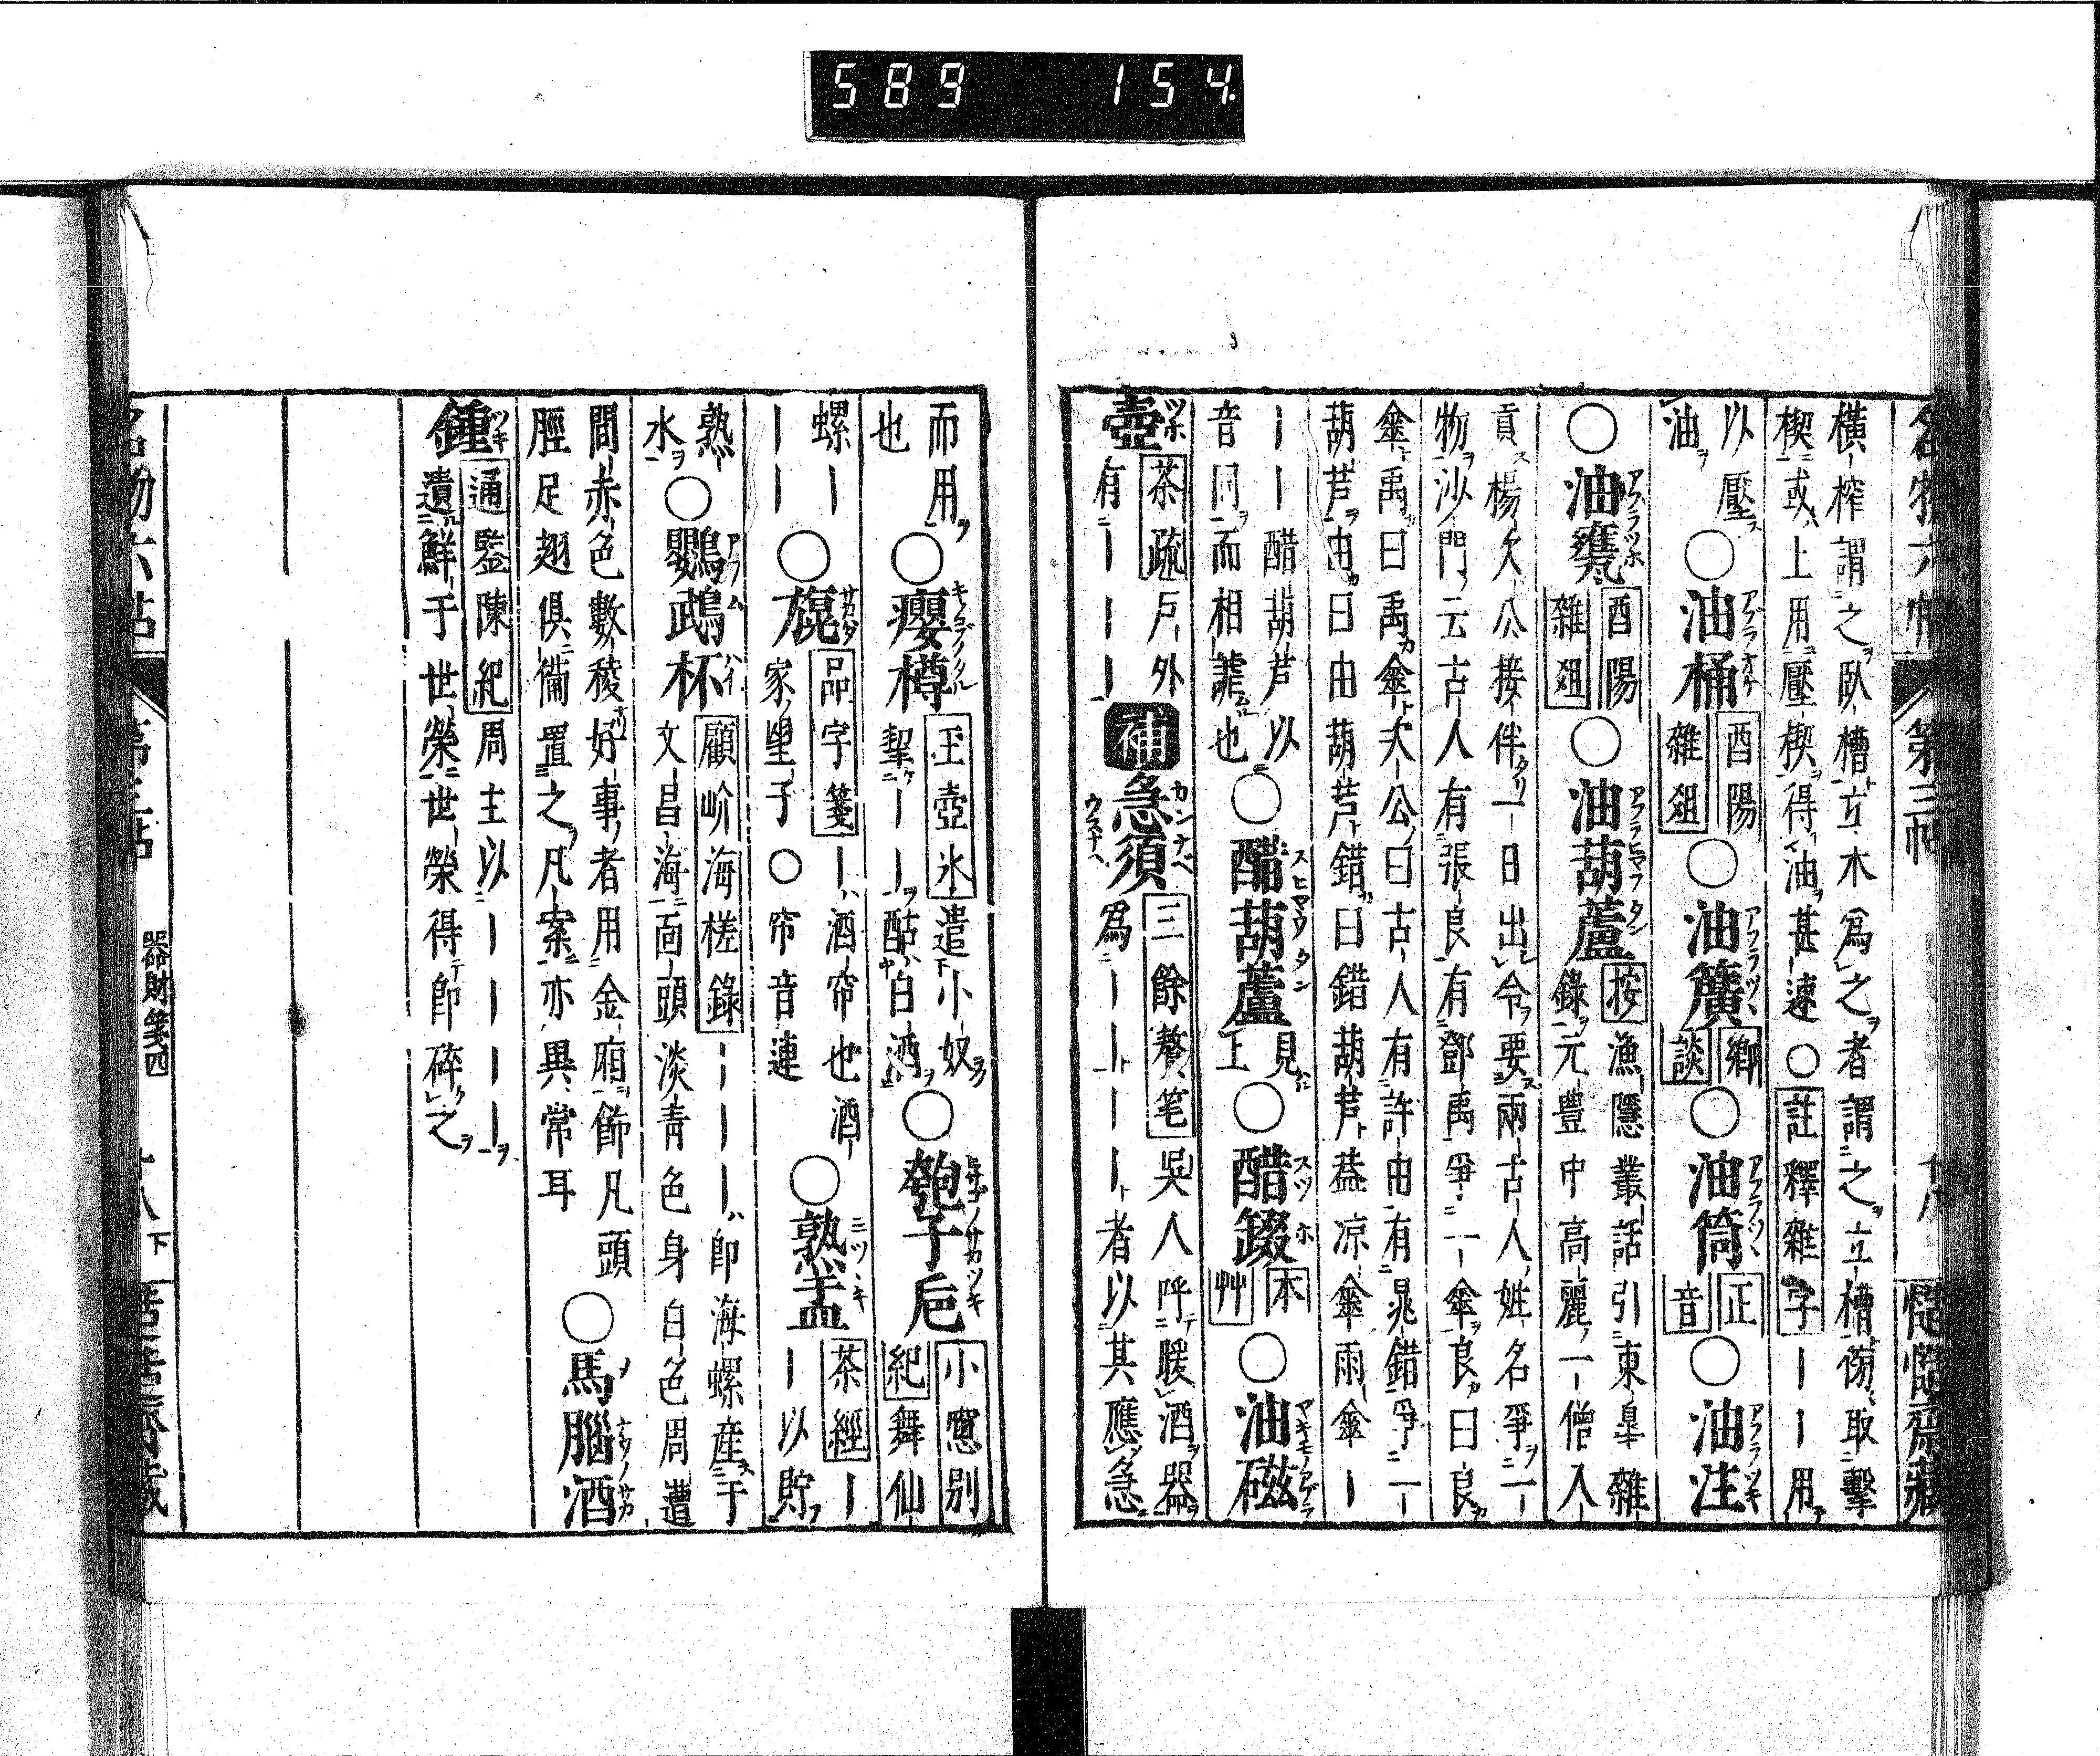 589 154
名物六帖 第三帖 十八 慥慥齋藏
横榨謂之臥槽立木爲之者謂之立槽傍取擊
楔或上用壓楔得油甚速○註釋雜字｜｜用
以壓
油
○油桶 アブラオケ 酉陽雜俎
○油簴 鄉談
○油筒 正音
○油注 アフラツキ
○油甕 アフラツホ 酉陽雜俎
○油葫蘆 按漁隱叢話引東皐雜
錄元豊中高麗一僧入
貢楊次公接伴一日出令要兩古人姓名爭一
物沙門云古人有張良有鄧禹爭一傘良曰良
傘禹曰禹傘次公曰古人有許由有晁錯爭一
葫芦由曰由葫芦錯曰錯葫芦葢凉傘雨傘｜
｜｜醋葫芦以
音同而相謔也
○醋葫蘆 見上
○醋錣 スツホ 本艸
○油磁
壺 ツホ 茶疏戸外
有｜｜｜｜
補急須 カンナベ ウスナベ 三餘贅笔吳人呼暖酒器
爲｜｜｜｜者以其應急
而用
也
○癭樽 玉壺氷遣小奴
挈｜｜酤白酒
○匏子巵 小窓別
紀舞仙
螺｜
｜｜
○旗 品字箋｜酒帘也酒
家望子○帘音連
○熟盂 茶經｜
｜以貯
熟
水
○鸚鵡杯 顧岕海槎錄｜｜｜即海螺産于
文昌海面頭淡青色身白色周遭
間赤色數稜好事者用金廂飾凡頭
脛足翅俱備置之凡案亦異常耳
○馬腦酒
鍾 通鑑陳紀周主以｜｜｜｜
遺鮮于世榮世榮得即碎之
名物六帖 第三帖 器財箋四 十八下 慥慥齋藏